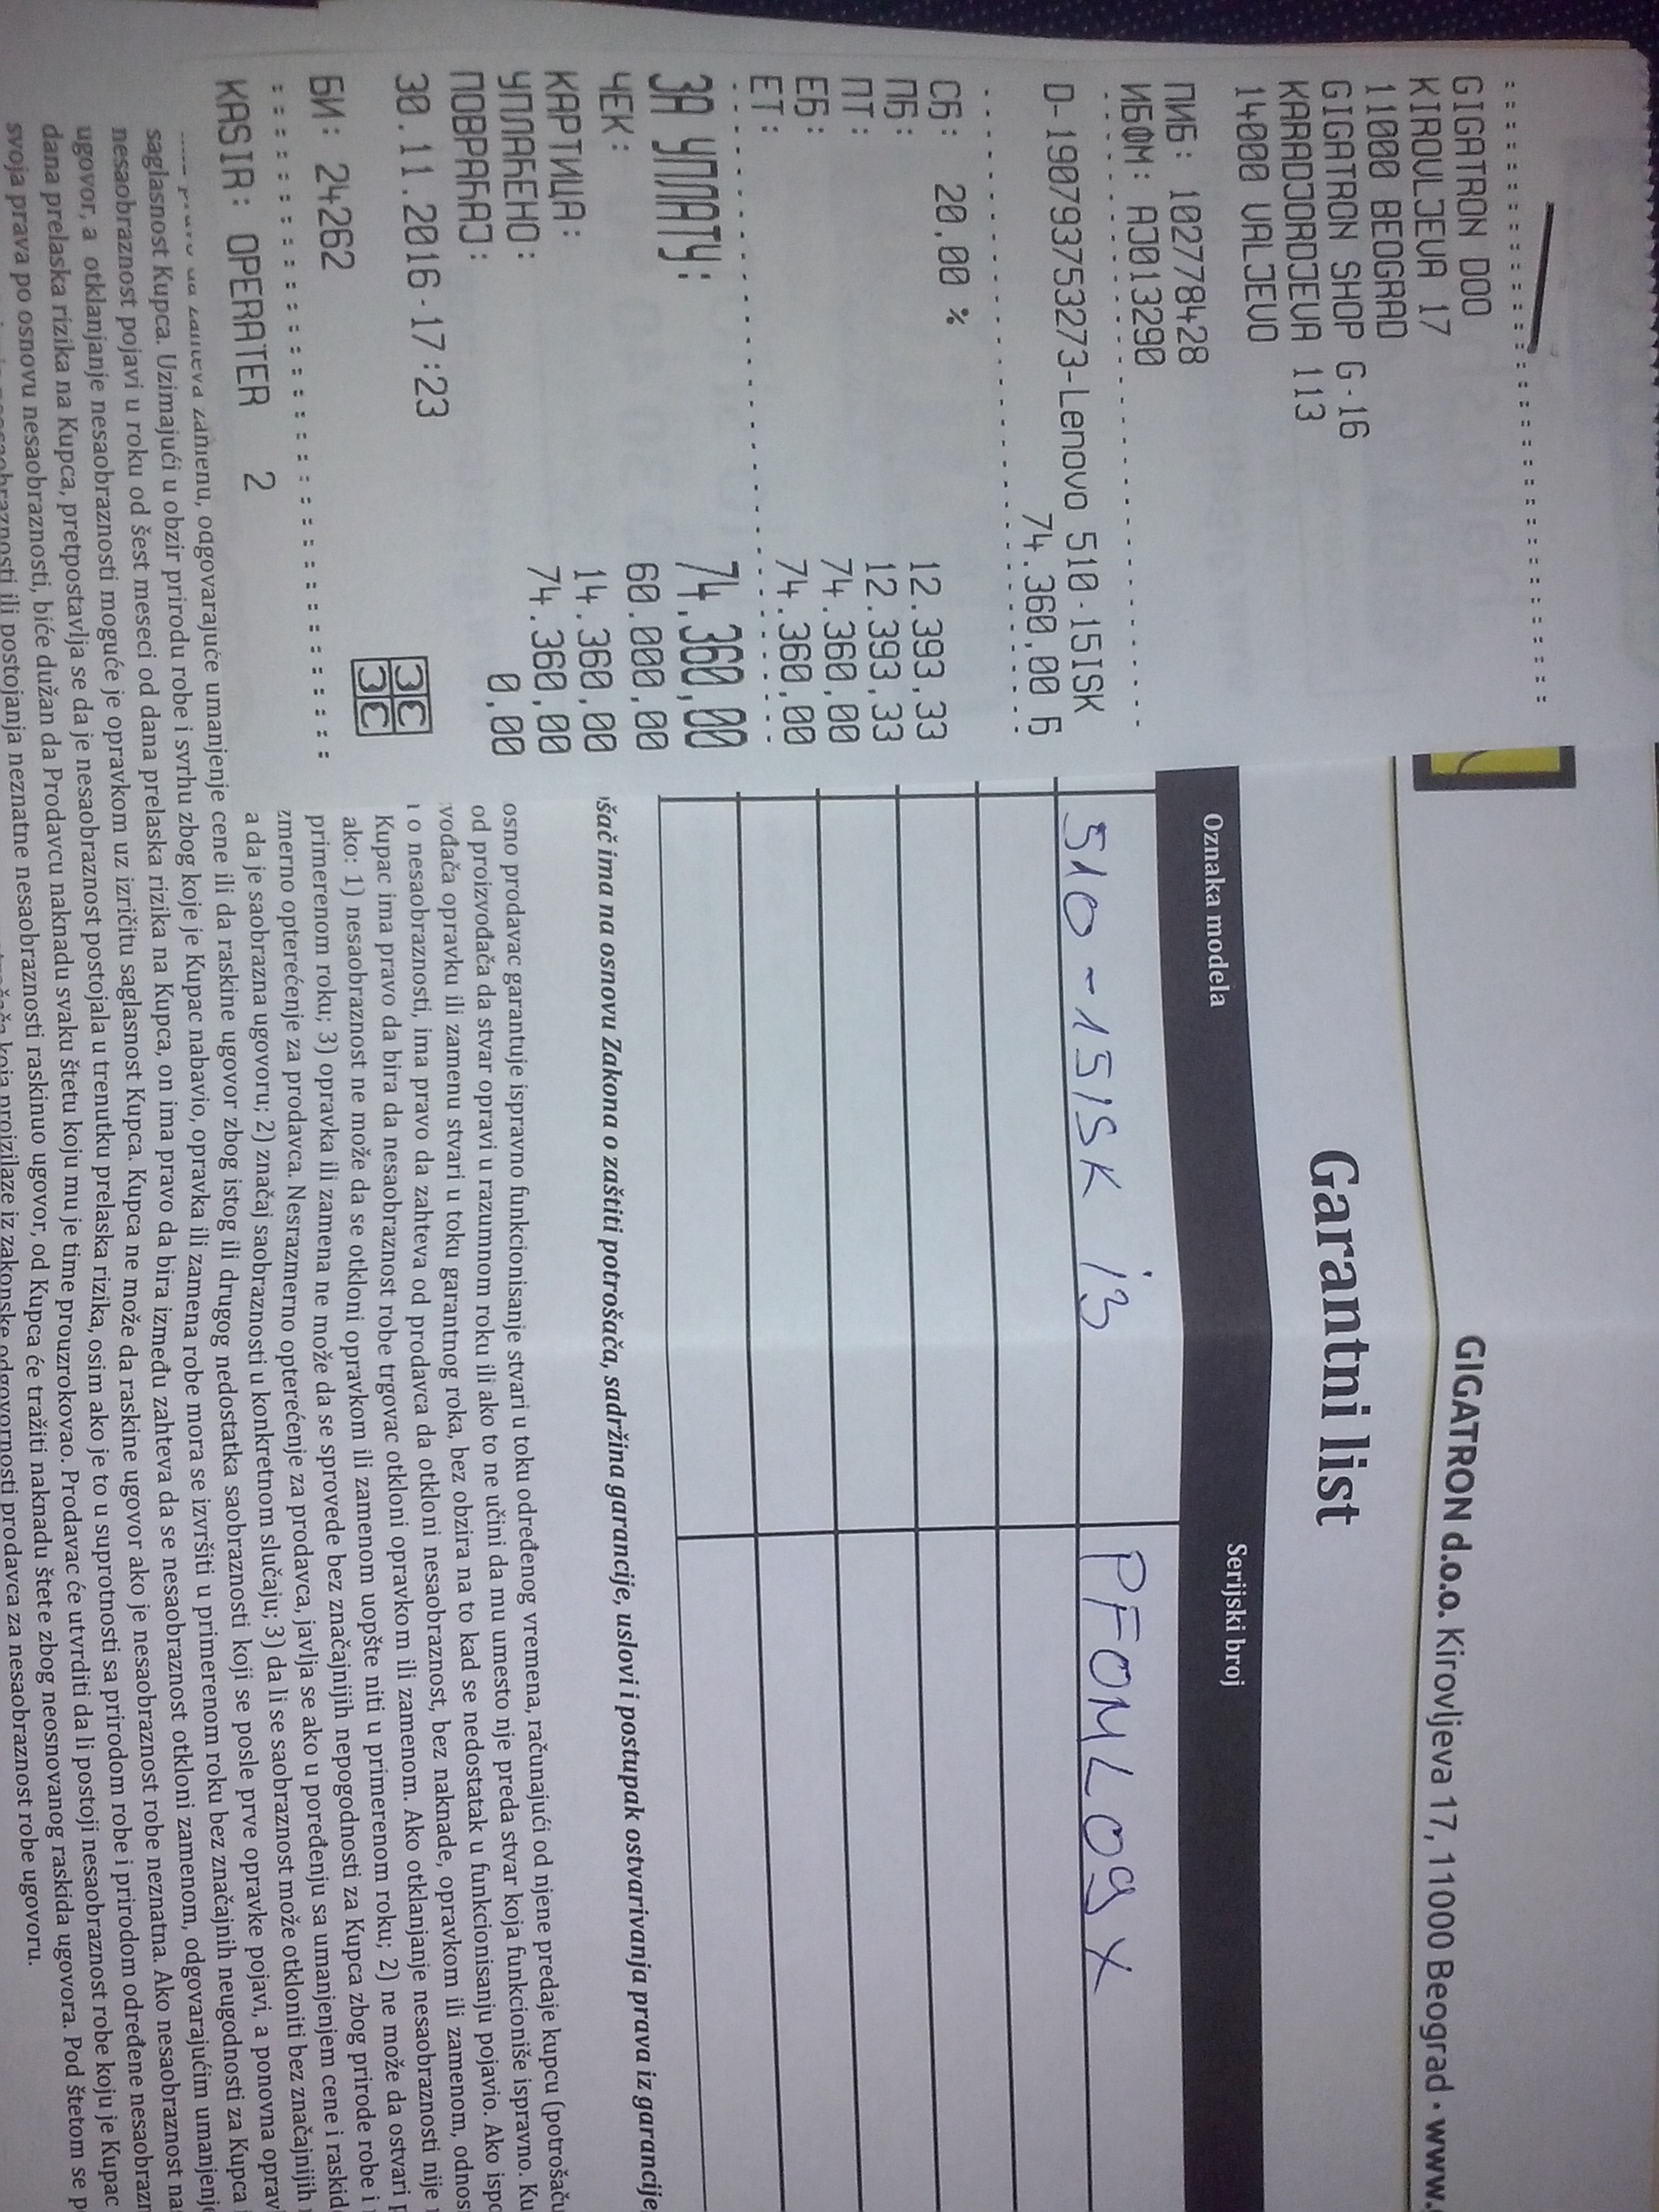 GIGATRON DOO
KIROVLJEVA 17
11000 BEOGRAD
GIGATRON SHOP G-16
KARADJORDJEVA 113
14000 VALJEVO
ПИБ: 102778428
ИБФМ: AJ013290
D-190793753273-Lenovo 510-15ISK
74.360,00 Б
СБ: 20,00 % 12.393,33
ПБ: 12.393,33
ПТ: 74.360,00
ЕБ: 74.360,00
ЕТ:
ЗА УПЛАТУ: 74.360,00
ЧЕК: 60.000,00
КАРТИЦА: 14.360,00
УПЛАЋЕНО: 74.360,00
ПОВРАЋАЈ: 0,00
30.11.2016-17:23
БИ: 24262
KASIR: OPERATER 2
GIGATRON d.o.o. Kirovljeva 17, 11000 Beograd • www.
Garantni list
Oznaka modela Serijski broj
510-15ISK i3 PF0ML09X
ima na osnovu Zakona o zaštiti potrošača, sadržina garancije, uslovi i postupak ostvarivanja prava iz garancije,
osno prodavac garantuje ispravno funkcionisanje stvari u toku određenog vremena, računajući od njene predaje kupcu (potrošaču
od proizvođača da stvar opravi u razumnom roku ili ako to ne učini da mu umesto nje preda stvar koja funkcioniše ispravno. Ku
vođača opravku ili zamenu stvari u toku garantnog roka, bez obzira na to kad se nedostatak u funkcionisanju pojavio. Ako ispo
o nesaobraznosti, ima pravo da zahteva od prodavca da otkloni nesaobraznost, bez naknade, opravkom ili zamenom, odnos
Kupac ima pravo da bira da nesaobraznost robe trgovac otkloni opravkom ili zamenom. Ako otklanjanje nesaobraznosti nije
ako: 1) nesaobraznost ne može da se otkloni opravkom ili zamenom uopšte niti u primerenom roku; 2) ne može da ostvari
primerenom roku; 3) opravka ili zamena ne može da se sprovede bez značajnijih nepogodnosti za Kupca zbog prirode robe i
zmerno opterećenje za prodavca. Nesrazmerno opterećenje za prodavca, javlja se ako u poređenju sa umanjenjem cene i raskid
a da je saobrazna ugovoru; 2) značaj saobraznosti u konkretnom slučaju; 3) da li se saobraznost može otkloniti bez značajnijih
zamenu, odgovarajuće umanjenje cene ili da raskine ugovor zbog istog ili drugog nedostatka saobraznosti koji se posle prve opravke pojavi, a ponovna oprav
saglasnost Kupca. Uzimajući u obzir prirodu robe i svrhu zbog koje je Kupac nabavio, opravka ili zamena robe mora se izvršiti u primerenom roku bez značajnih neugodnosti za Kupca
nesaobraznost pojavi u roku od šest meseci od dana prelaska rizika na Kupca, on ima pravo da bira između zahteva da se nesaobraznost otkloni zamenom, odgovarajućim umanjenje
ugovor, a otklanjanje nesaobraznosti moguće je opravkom uz izričitu saglasnost Kupca. Kupca ne može da raskine ugovor ako je nesaobraznost robe neznatna. Ako nesaobraznost na
dana prelaska rizika na Kupca, pretpostavlja se da je nesaobraznost postojala u trenutku prelaska rizika, osim ako je to u suprotnosti sa prirodom robe i prirodom određene nesaobrazn
svoja prava po osnovu nesaobraznosti, biće dužan da Prodavcu naknadu svaku štetu koju mu je time prouzrokovao. Prodavac će utvrditi da li postoji nesaobraznost robe koju je Kupac
ili postojanja neznatne nesaobraznosti raskinuo ugovor, od Kupca će tražiti naknadu štete zbog neosnovanog raskida ugovora. Pod štetom se p
koja proizilaze iz zakonske odgovornosti prodavca za nesaobraznost robe ugovoru.